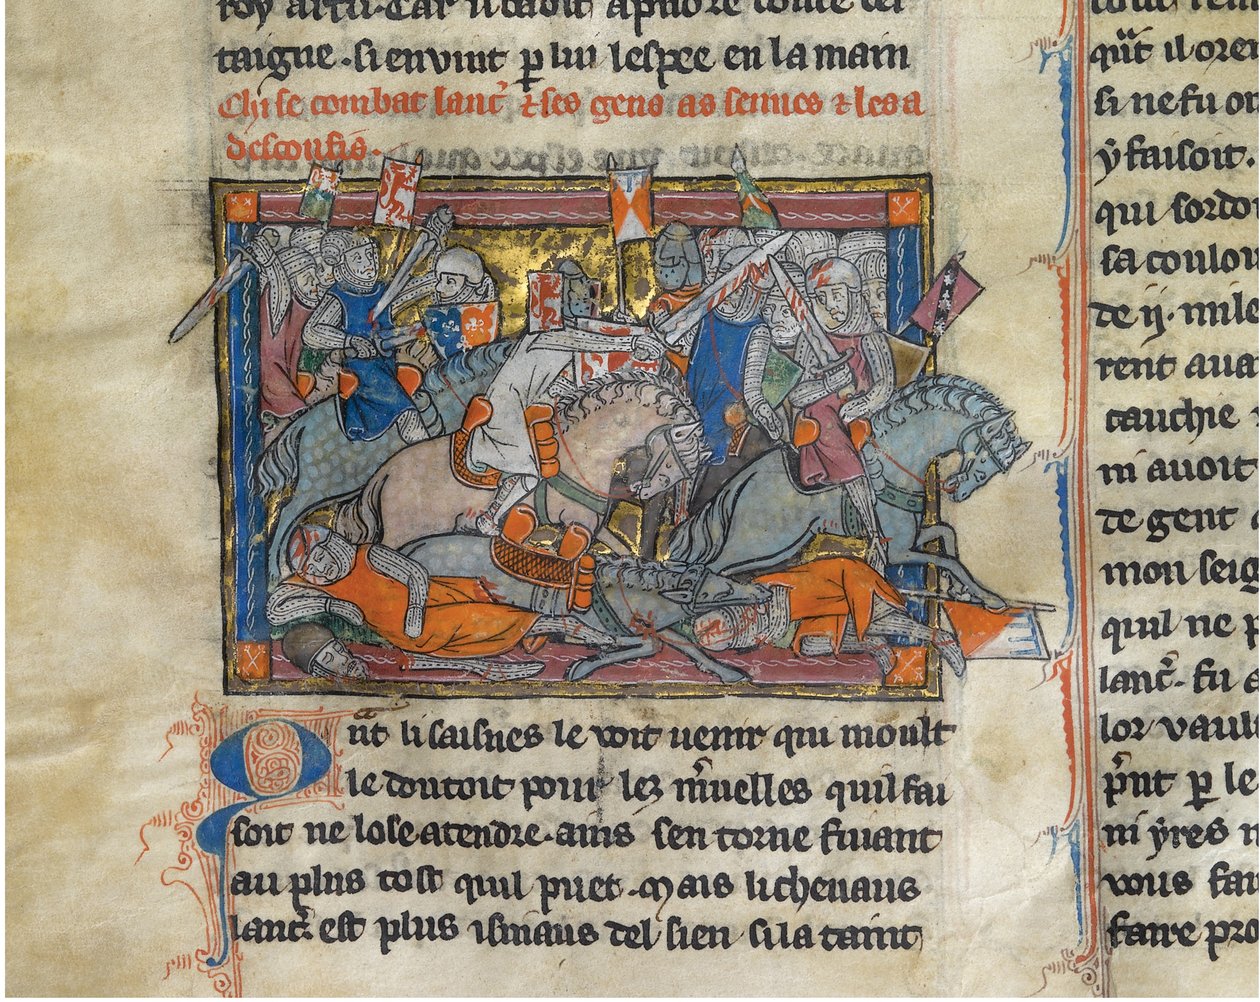 roy artu. Car il tadit apriore toute cel
taigne. si en vint p lui lespee en la main
Chi se combat lanc̄ & ses gens as sennes & les a
desconfis.
Qnt li saisnes le voit uenir qui moult
le doutoit pour les m̄uelles quil fai
soit ne lose atendre. ains sen torne fiuant
au plus tost quil puet. Mais li cheuaus
lanc̄ est plus isniaus del sien si la taint
qūt il oren
si ne fu on
y faisoit.
qui sordoi
sa coulou
de ij. mile
rent aua
cauchie
ni auoit
te gent
mon seig
quil ne p
lanc̄. fu a
lor vaull
p̄nt p le
ni yres
vous fan
faire pro